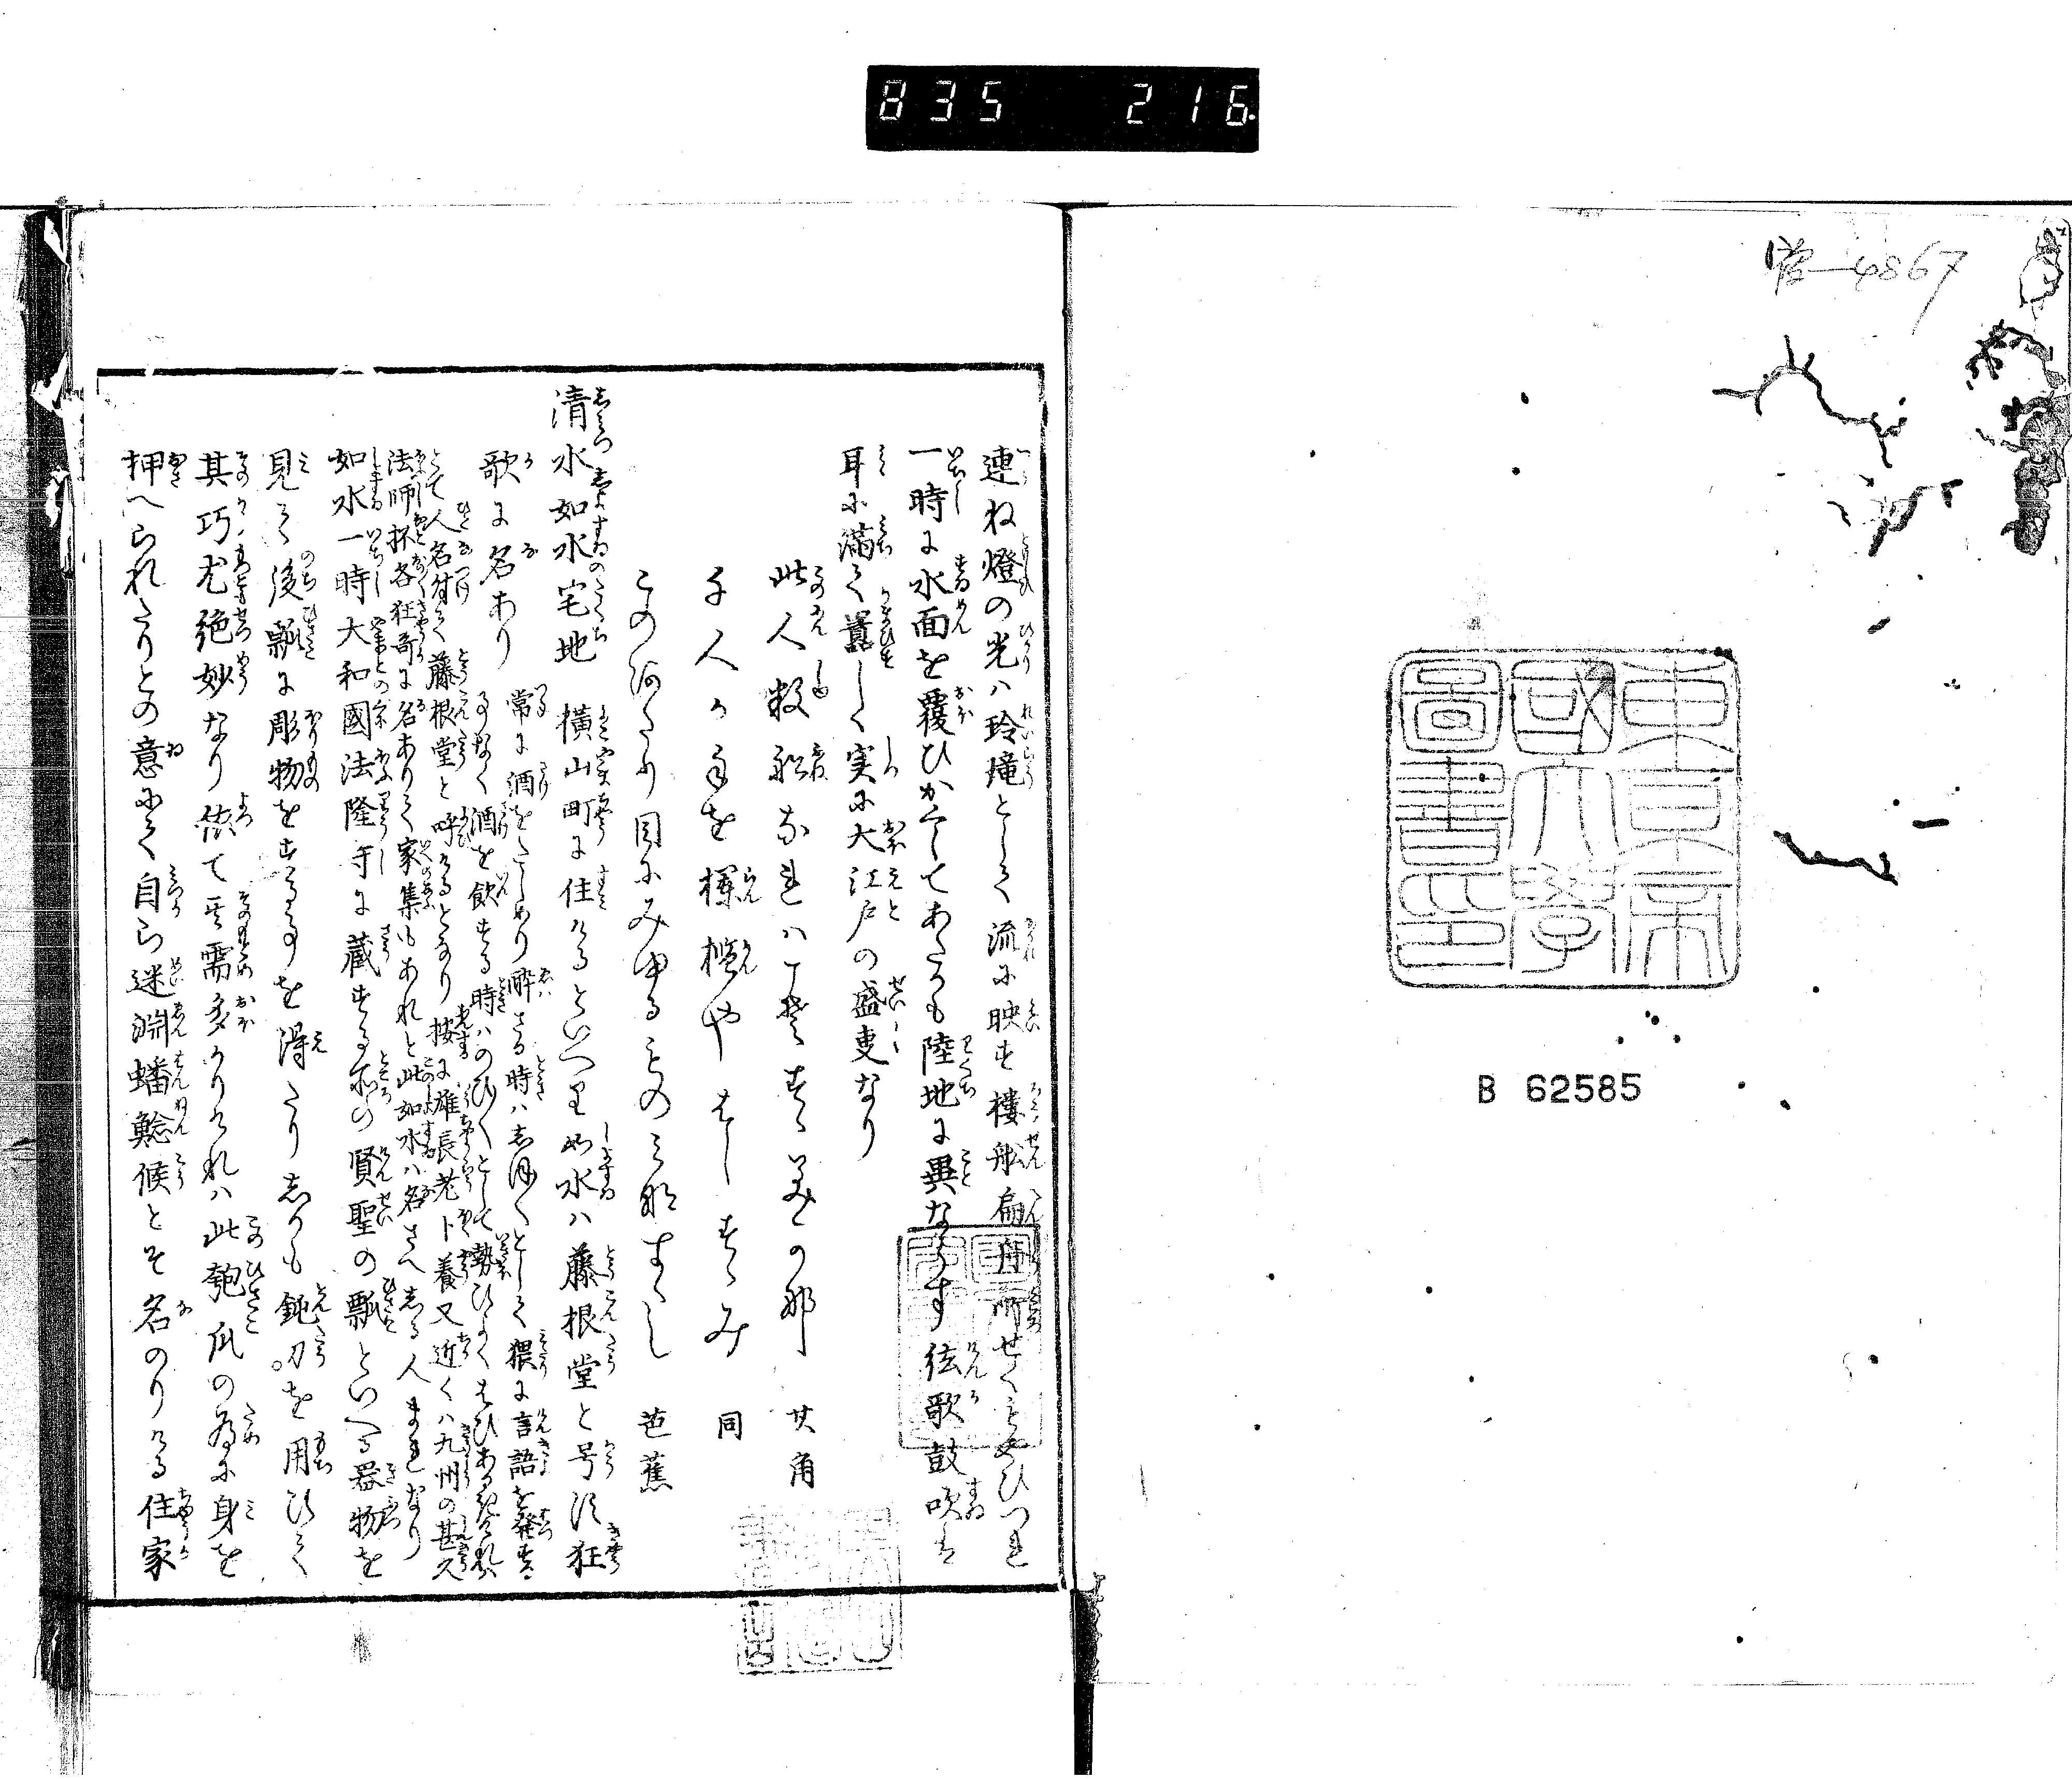 835 216
營—4867
東京帝
國大學
圖書印
B 62585
連ね燈の光ハ玲瓏として流に映す樓舩扁舟所せくもやひつれ
一時に水面を覆ひかくしてあたかも陸地に異ならす絃歌鼓吹は
耳に満て囂しく実に大江戸の盛事なり
此人数舩なれはこそ涼かな 其角
千人か手を欄檻やはしすゝみ 同
このあたり目にみゆるものみなすゝし 芭蕉
清水如水宅地 横山町に住けるといへり如水ハ藤根堂と号す狂
歌に名あり 常に酒をたしめり酔さる時ハしほ〳〵として猥に言語を発せす
事なく酒を飲する時ハのひ〳〵として勢ひよく
とて人名付て藤根堂と呼けるとなり按に雄長老卜養又近くハ九州の甚久
法師抔各狂哥に名ありて家集もあれと此如水ハ名さへしる人まれなり
如水一時大和國法隆寺に蔵する所の賢聖の瓢といへる器物を
見て後瓢に彫物をする事を得たりしかも鈍刀を用ひて
其巧尤絶妙なり依て其需多かりけれハ此匏瓜の為に身を
押へられたりとの意にて自ら迷淵蟠鯰候とそ名のりける住家